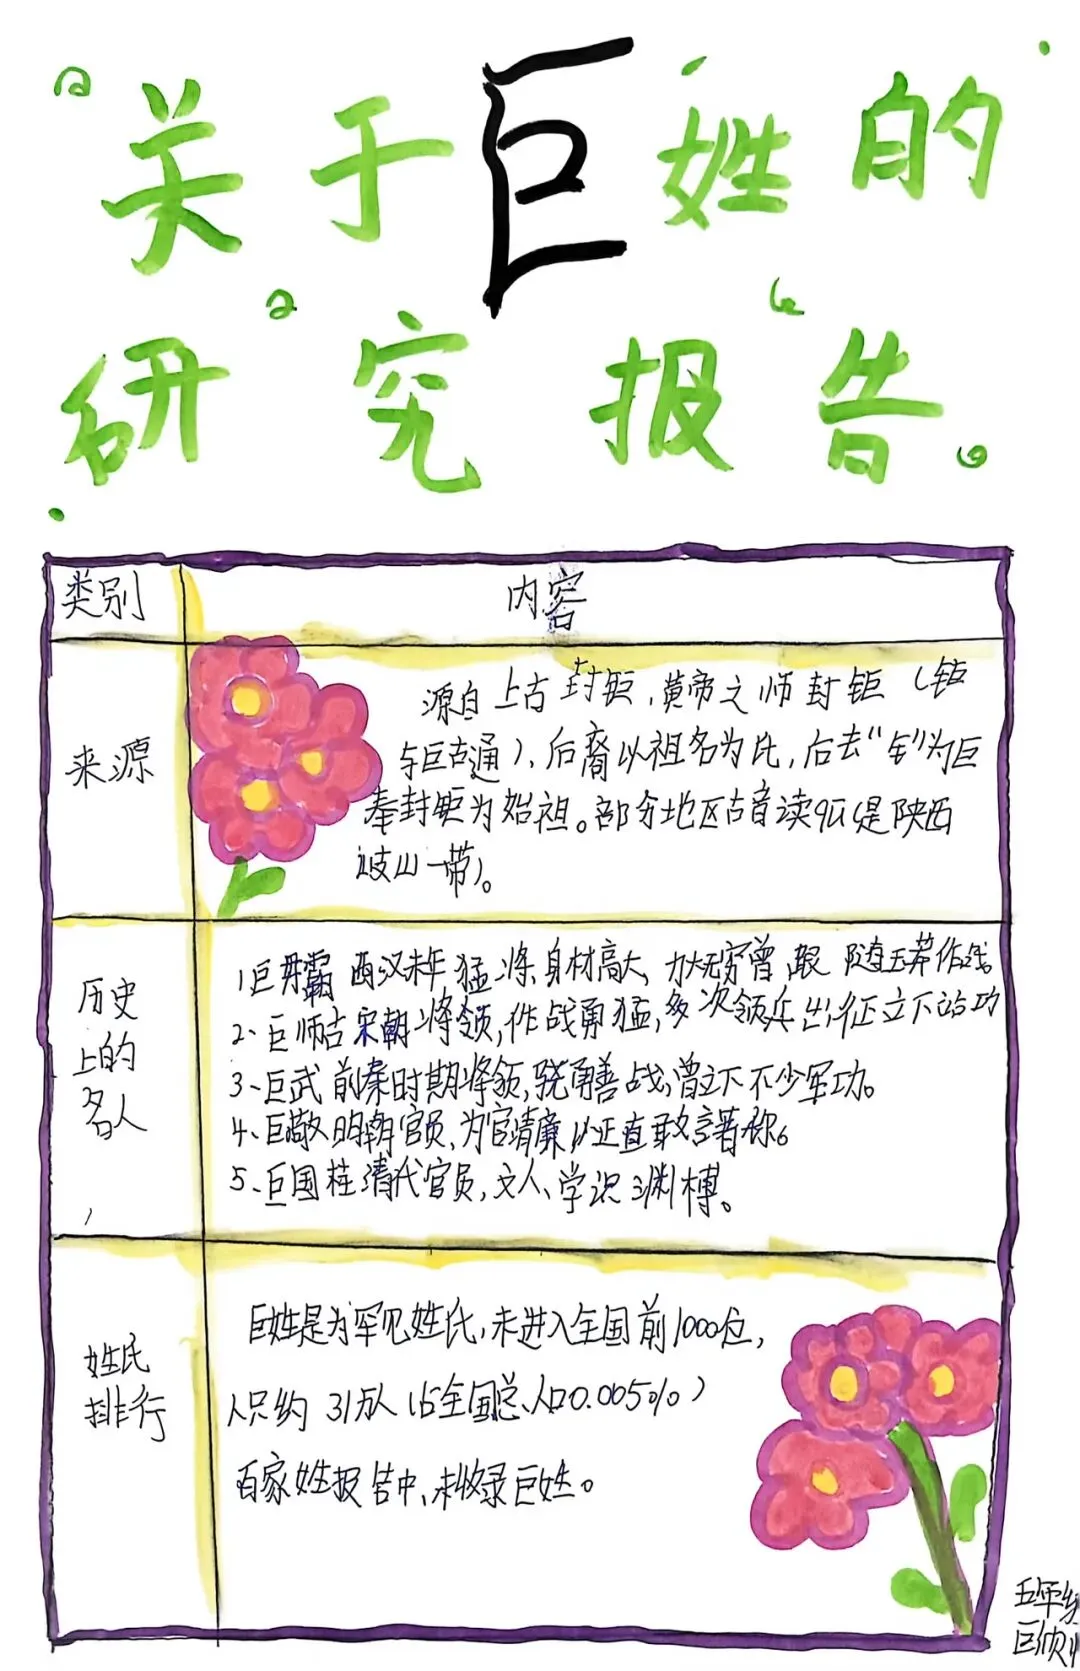 关于巨姓的
研究报告。
类别
内容
来源
源自上古封钜,黄帝之师封钜(钜
与巨古通),后裔以祖名为比,后去“钅”为巨
奉封钜为始祖。部分地区古音读qú(是陕西
岐山一带)。
历史
上的
名人
1巨毋霸 西汉末年猛将身材高大,力大无穷曾跟随王莽作战。
2、巨师古宋朝将领,作战勇猛,多次领兵出征立下战功
3、巨武前秦时期将领,骁勇善战,曾立下不少军功。
4、巨敬明朝官员,为官清廉以正直敢言著称。
5、巨国桂清代官员,文人、学识渊博。
姓氏
排行
巨姓是为罕见姓氏,未进入全国前1000位,
人只约31万人(占全国总人口0.005%)
百家姓报告中,未收录巨姓。
五年
巨